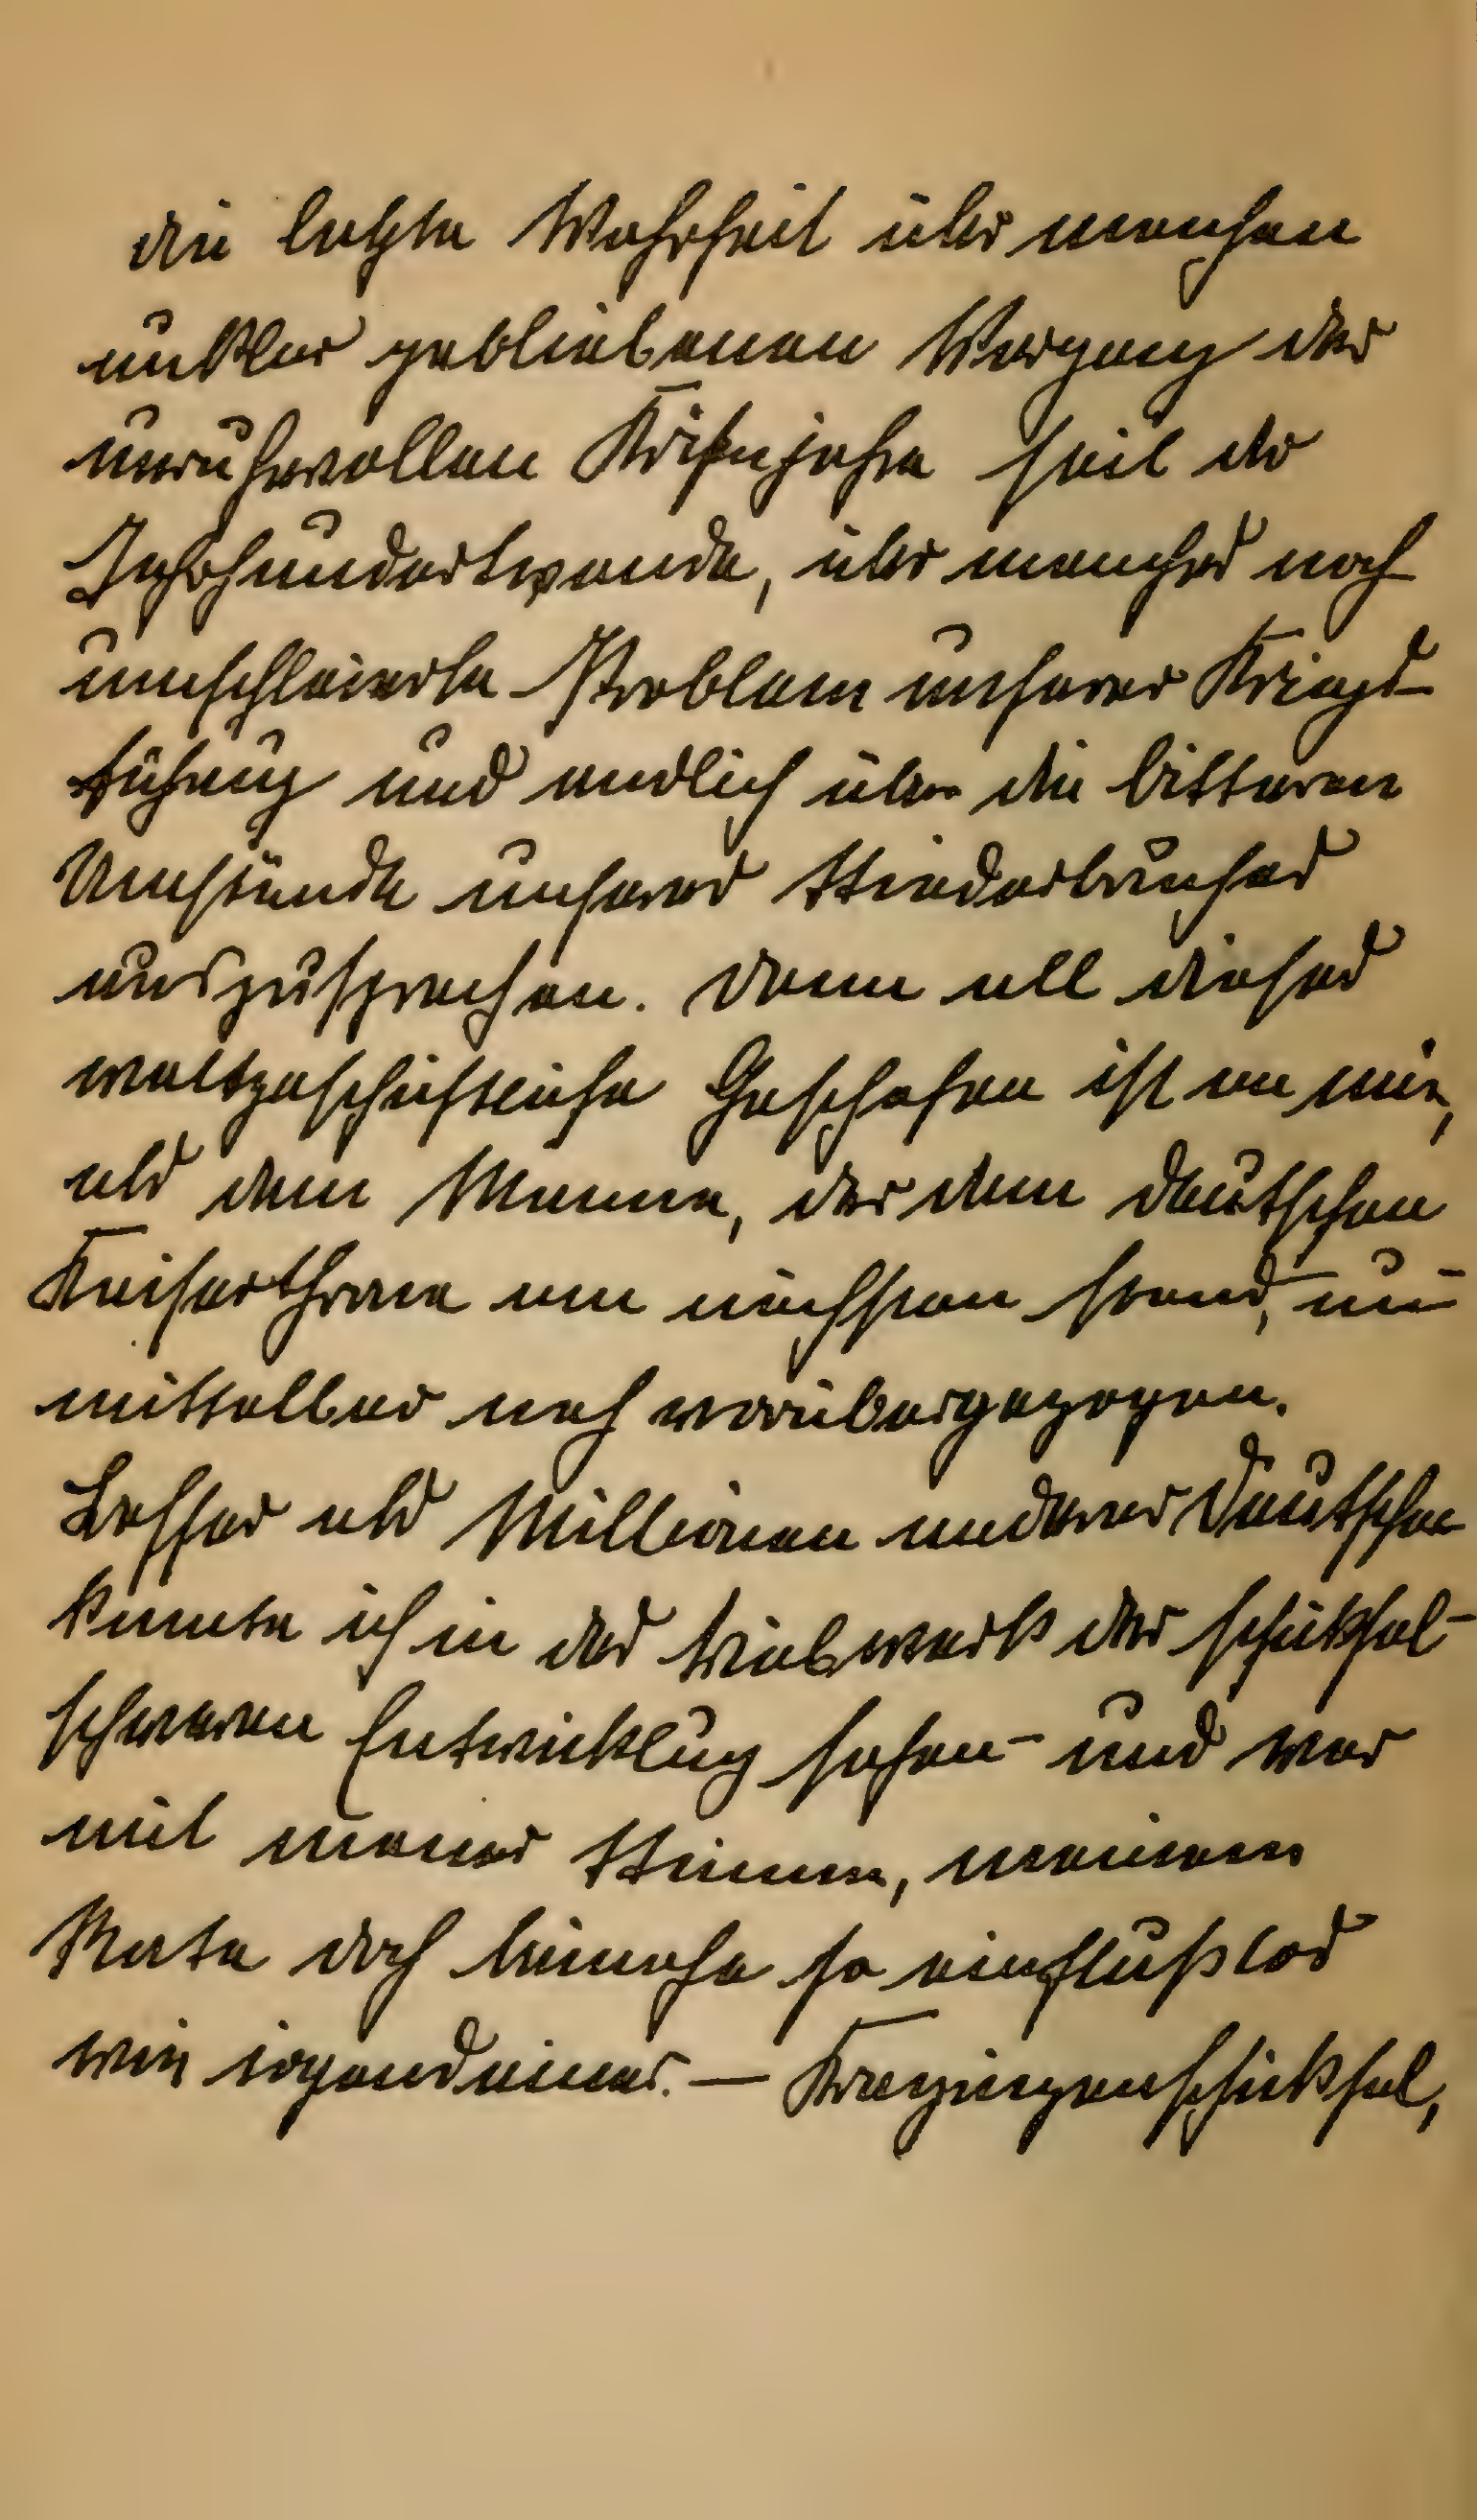 die letzte Wahrheit über manchen
unklar gebliebenen Vorgang der
unruhvollen Krisenjahre seit der
Jahrhundertwende, über manches noch
umschleierte Problem unserer Kriegs-
führung und endlich über die bitteren
Umstände unseres Niederbruches
auszusprechen. Denn all dieses
weltgeschichtliche Geschehen ist an mir,
als dem Manne, der dem deutschen
Kaiserthrone am nächsten stand, un-
mittelbar nah vorübergezogen.
Besser als Millionen anderer Deutscher
konnte ich in das Triebwerk der schicksal-
schweren Entwicklung sehen – und war
mit meiner Stimme, meinem
Rate doch beinahe so einflußlos
wie irgendeiner. — Kronprinzenschicksal,